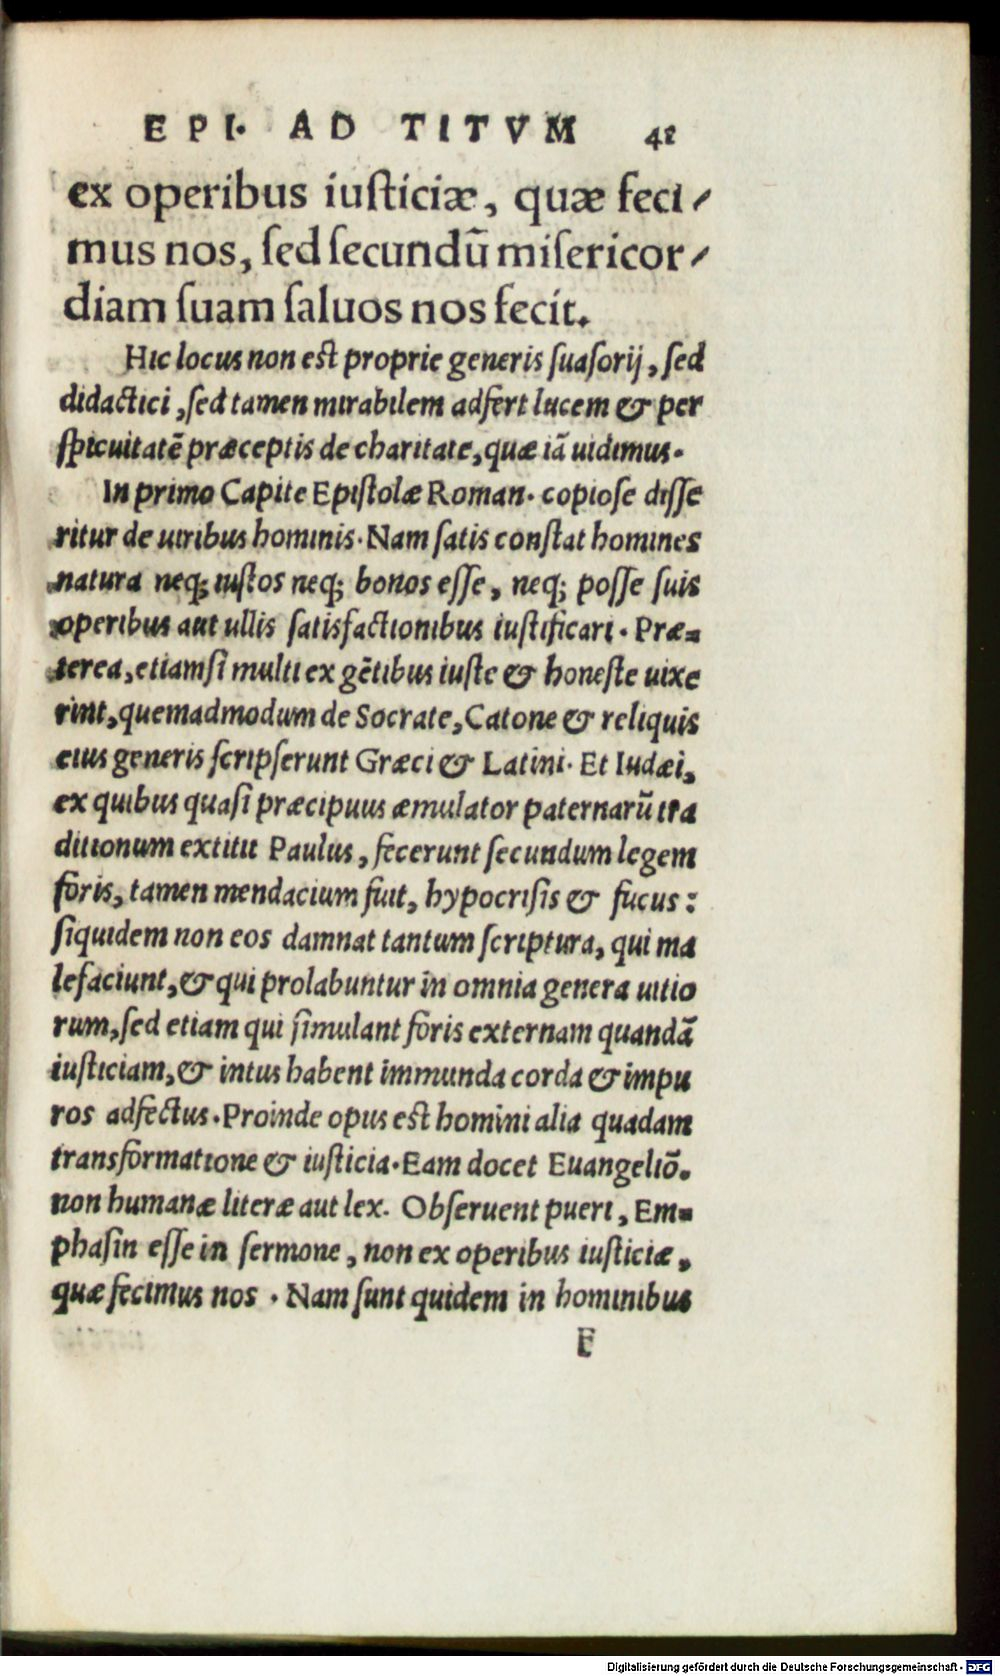 EPI. AD TITVM 41
ex operibus iuſticiæ, quæ feci⸗
mus nos, ſed ſecundũ miſericor⸗
diam ſuam ſaluos nos fecit.
Hic locus non eſt proprie generis ſuaſorij, ſed
didactici, ſed tamen mirabilem adfert lucem & per
ſpicuitatẽ præceptis de charitate, quæ iã uidimus.
In primo Capite Epiſtolæ Roman. copioſe diſſe
ritur de uiribus hominis. Nam ſatis conſtat homines
natura neq; iuſtos neq; bonos eſſe, neq; poſſe ſuis
operibus aut ullis ſatisfactionibus iuſtificari. Præ⸗
terea, etiamſi multi ex gẽtibus iuſte & honeſte uixe
rint, quemadmodum de Socrate, Catone & reliquis
eius generis ſcripſerunt Græci & Latini. Et Iudæi,
ex quibus quaſi præcipuus æmulator paternarũ tra
ditionum extitit Paulus, fecerunt ſecundum legem
foris, tamen mendacium fuit, hypocriſis & fucus:
ſiquidem non eos damnat tantum ſcriptura, qui ma
lefaciunt, & qui prolabuntur in omnia genera uitio
rum, ſed etiam qui ſimulant foris externam quandã
iuſticiam, & intus habent immunda corda & impu
ros adfectus. Proinde opus eſt homini alia quadam
transformatione & iuſticia. Eam docet Euangeliõ.
non humanæ literæ aut lex. Obſeruent pueri, Em⸗
phaſin eſſe in ſermone, non ex operibus iuſticiæ,
quæ fecimus nos. Nam ſunt quidem in hominibus
F
Digitalisierung gefördert durch die Deutsche Forschungsgemeinschaft - DFG